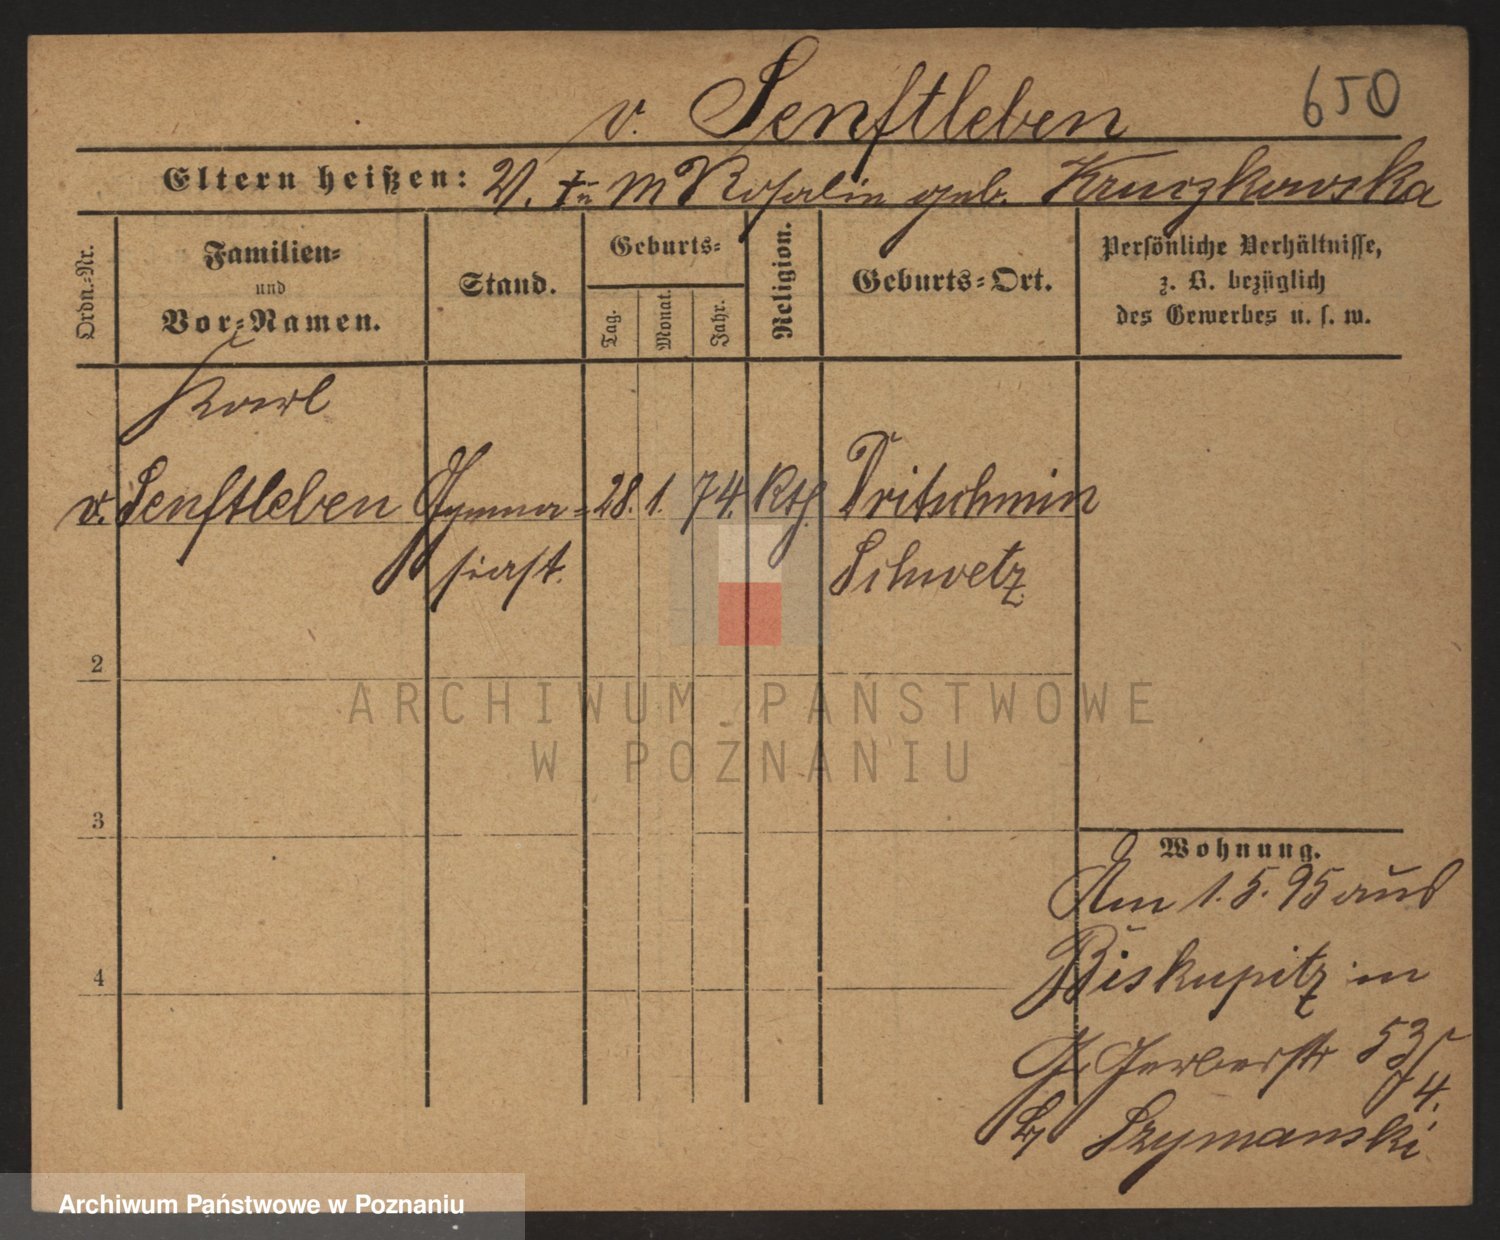 v. Senftleben
650
Eltern heißen: V. † M Rosalie geb. Kruczkowska
Ordn.-Nr.
Familien-
und
Vor-Namen.
Stand.
Geburts-
Tag.
Monat.
Jahr.
Religion.
Geburts-Ort.
Persönliche Verhältnisse,
z. B. bezüglich
des Gewerbes u. s. w.
Karl
v. Senftleben Gymna- 28. 1. 74. Kth.
siast.
Schwetz
2
3
4
Wohnung.
Am 1.5.95 aus
Biskupitz in
G. Gerberstr 53/
4.
by Szymanski
ARCHIWUM PAŃSTWOWE
W POZNANIU
Archiwum Państwowe w Poznaniu